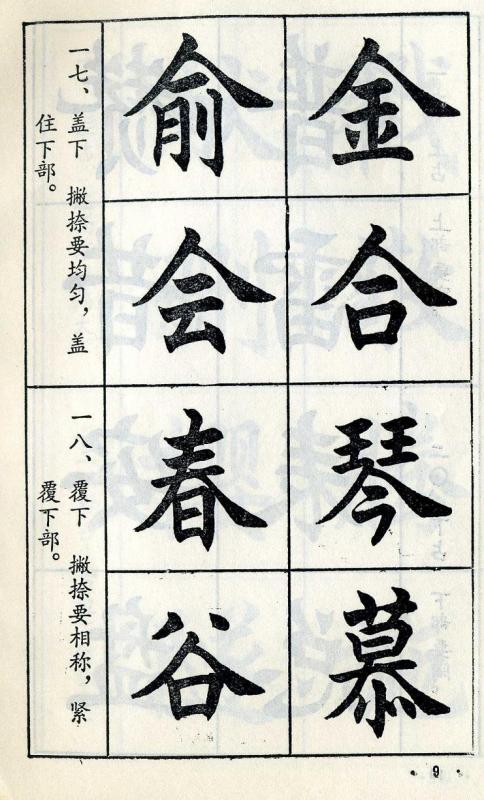 金
合
俞
会
一七、盖下 撇捺要均匀，盖
住下部。
琴
慕
春
谷
一八、覆下 撇捺要相称，紧
覆下部。
·9·